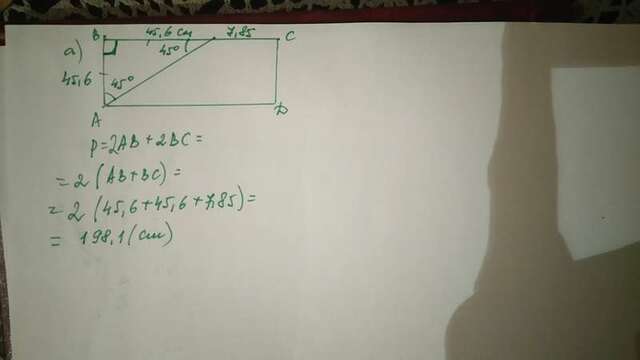 B 45,6 см 7,85 C
а) 45°
45,6 45°
A D
P=2AB+2BC=
=2(AB+BC)=
=2(45,6+45,6+7,85)=
= 198,1(см)